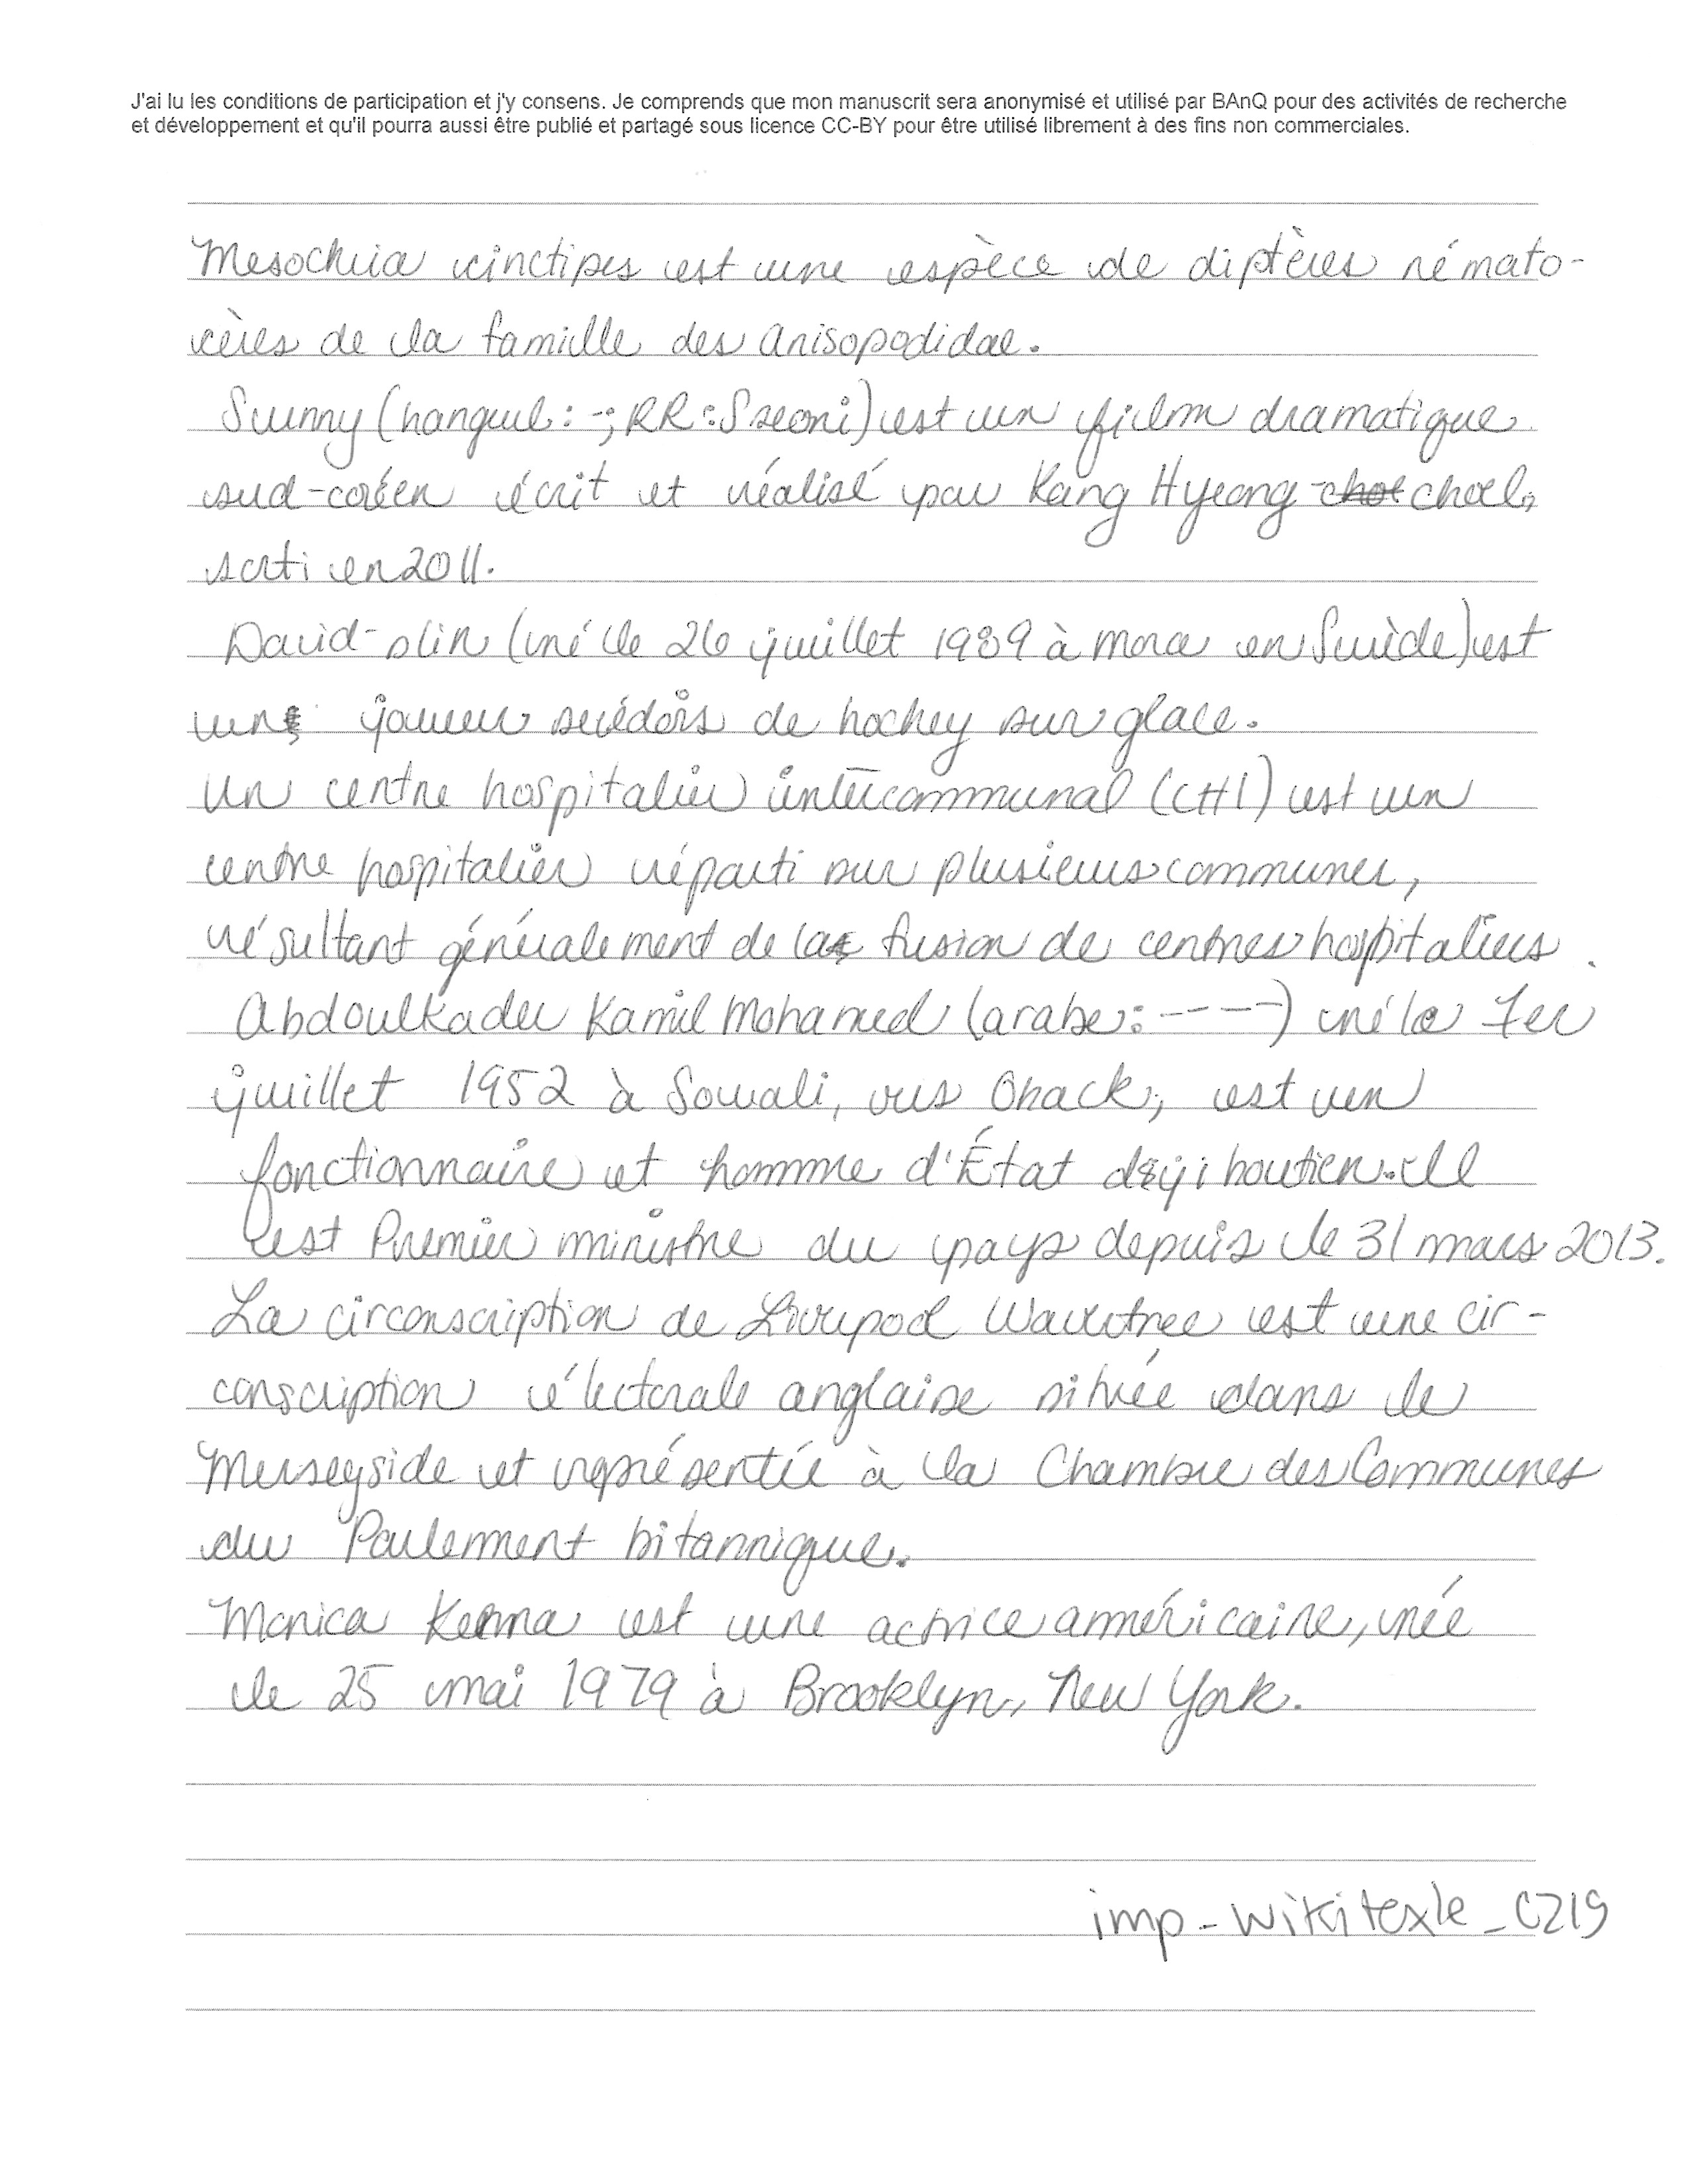 J'ai lu les conditions de participation et j'y consens. Je comprends que mon manuscrit sera anonymisé et utilisé par BAnQ pour des activités de recherche
et développement et qu'il pourra aussi être publié et partagé sous licence CC-BY pour être utilisé librement à des fins non commerciales.
Mesochria cinctipes est une espèce de diptères némato-
cères de la famille des Anisopodidae.
Sunny (hangeul : -; RR : Sseoni) est un film dramatique
sud-coréen écrit et réalisé par Kang Hyeong-choel,
sorti en 2011.
David-olin (né le 26 juillet 1989 à mora en Suède) est
un joueur suédois de hockey sur glace.
Un centre hospitalier intercommunal (CHI) est un
centre hospitalier réparti sur plusieurs communes,
résultant généralement de la fusion de centres hospitaliers.
Abdoulkader Kamil Mohamed (arabe : ----) né le 1er
juillet 1952 à Souali, vers Obock, est un
fonctionnaire et homme d'État djiboutien. Il
est Premier ministre du pays depuis le 31 mars 2013.
La circonscription de Liverpool Wavertree est une cir-
conscription électorale anglaise située dans le
Merseyside et représentée à la Chambre des Communes
du Parlement britannique.
Monica Keena est une actrice américaine, née
le 25 mai 1979 à Brooklyn, New York.
imp-wikitexte_0219